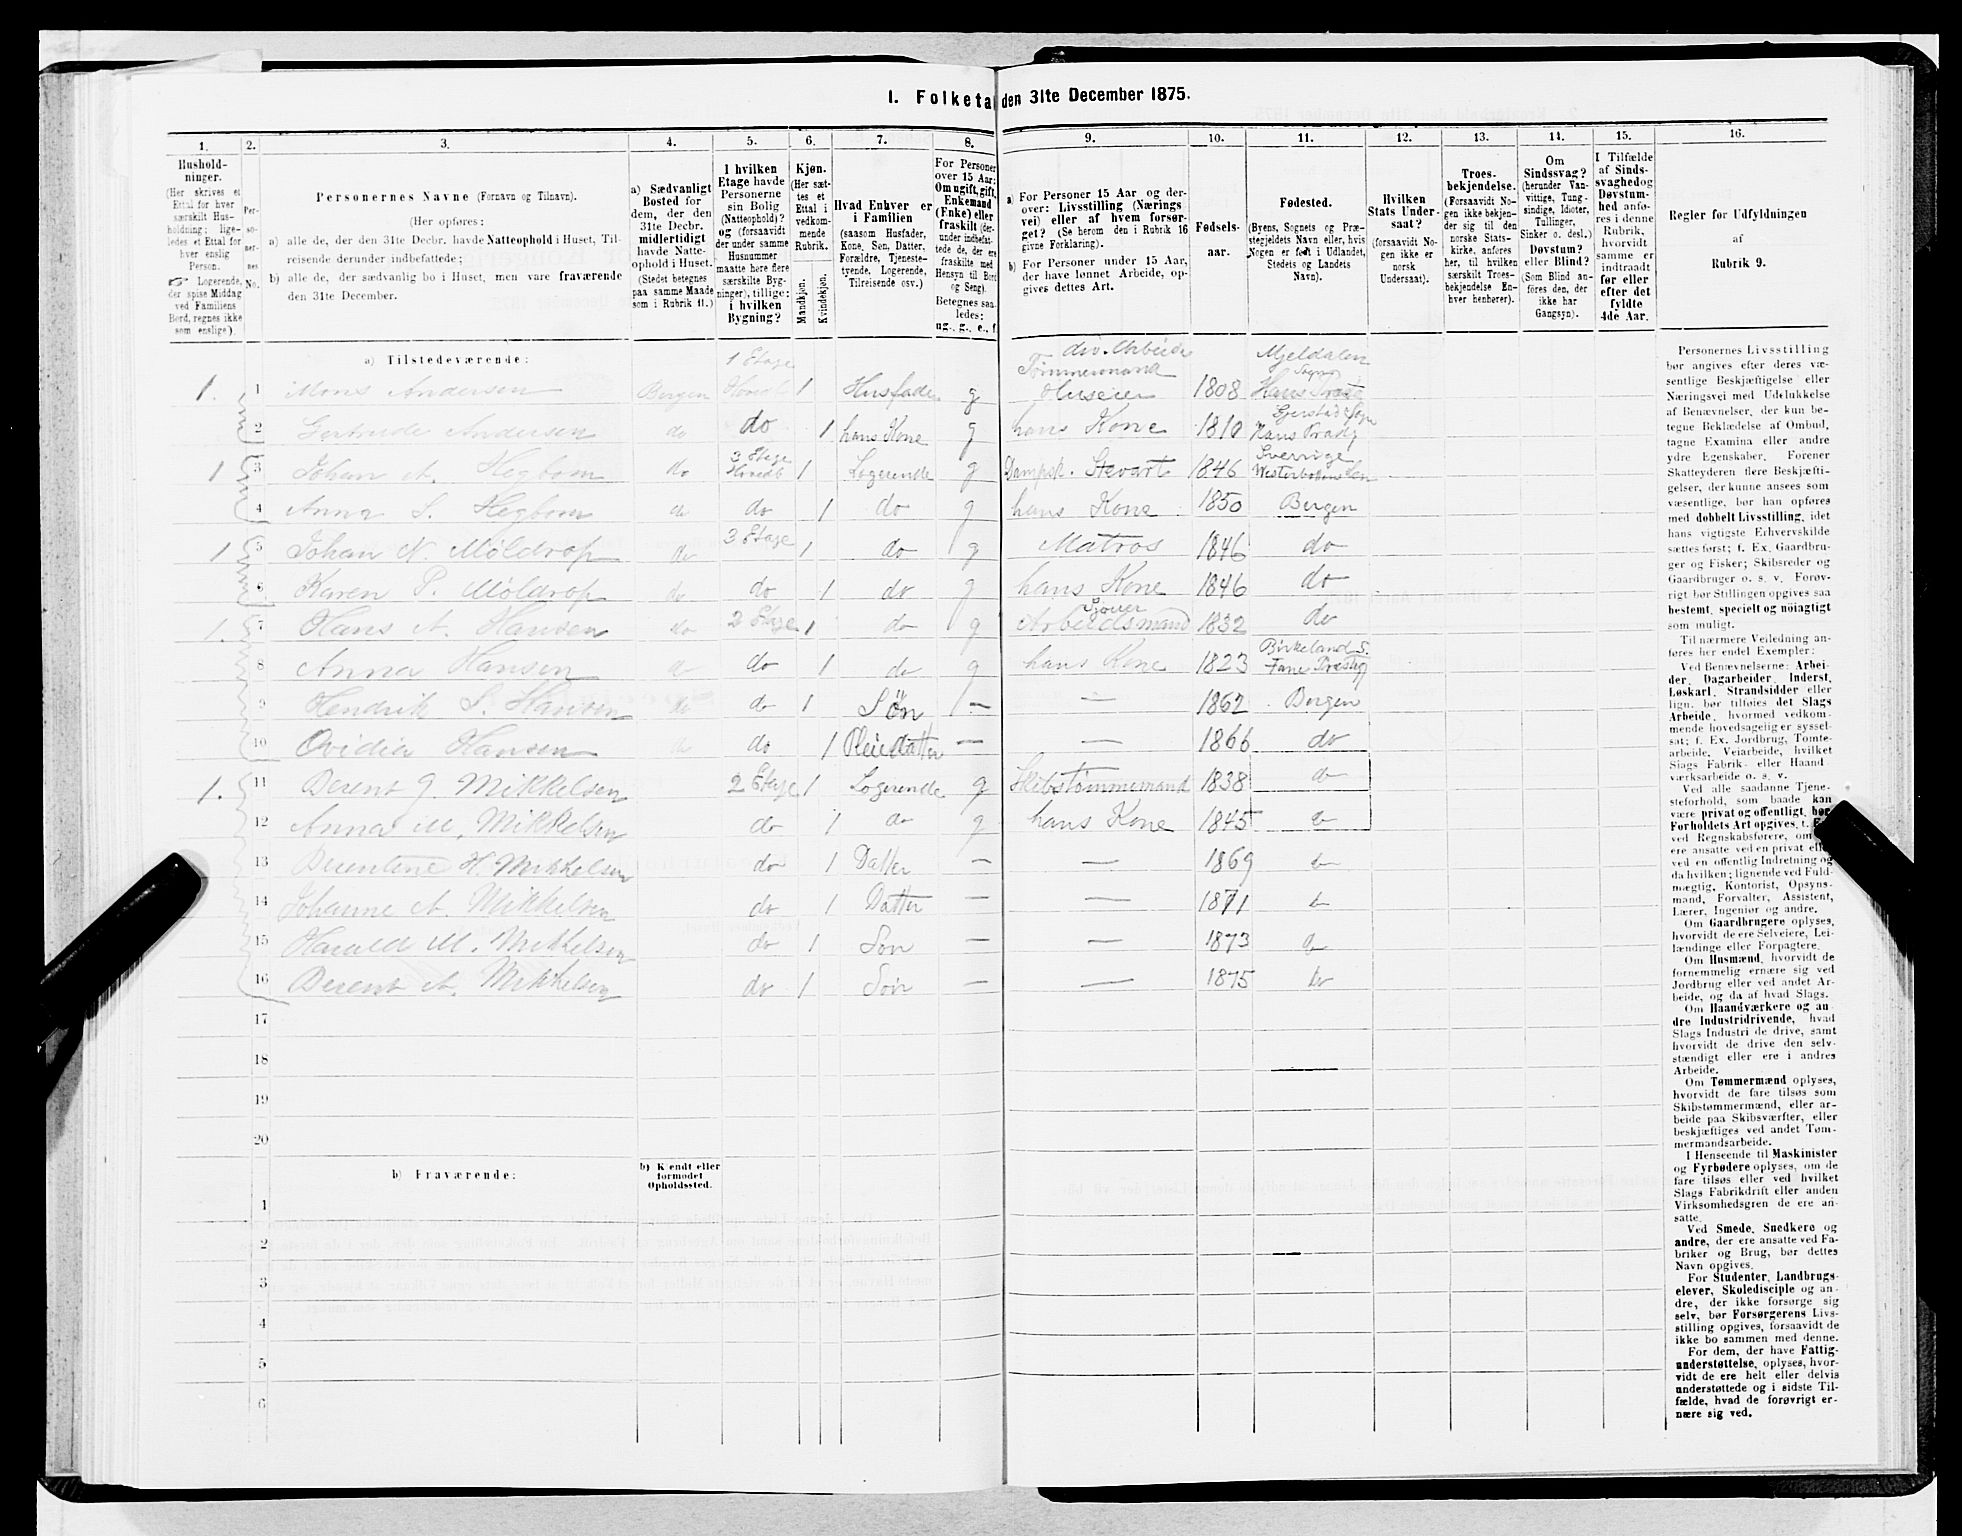 I. Folketa den 31te December 1875.
1. 2. 3. 4. 5. 6. 7. 8. 9. 10. 11. 12. 13. 14. 15. 16.
Hushold-
ninger.
(Her skrives et
Ettal for hver
særskilt Hus-
holdning; lige-
ledes et Ettal for
hver enslig
Person.
Logerende,
der spise Middag
ved Familiens
Bord, regnes ikke
som enslige).
Per-
so-
ner-
nes
No.
Personernes Navne (Fornavn og Tilnavn).
(Her opføres:
a) alle de, der den 31te Decbr. havde Natteophold i Huset, Til-
reisende derunder indbefattede;
b) alle de, der sædvanlig bo i Huset, men vare fraværende
den 31te December.
a) Sædvanligt
Bosted for
dem, der den
31te Decbr.
midlertidigt
havde Natte-
ophold i Huset.
(Stedet betegnes
paa samme Maade
som i Rubrik 11.)
I hvilken
Etage havde
Personerne
sin Bolig
(Natteophold)?
og (forsaavidt
der under samme
Husnummer
maatte høre flere
særskilte Byg-
ninger), tillige:
i hvilken
Bygning?
Kjøn.
(Her sæt-
tes et
Ettal i
vedkom-
mende
Rubrik.
Mandkjøn.
Kvindekjøn.
Hvad Enhver er
i Familien
(saasom Husfader,
Kone, Søn, Datter,
Forældre, Tjeneste-
tyende, Logerende,
Tilreisende osv.)
For Personer
over 15 Aar:
Om ugift, gift,
Enkemand
(Enke) eller
fraskilt (der-
under indbefat-
tede de, der ere
fraskilte med
Hensyn til Bord
og Seng).
Betegnes saa-
ledes:
ug., g., e., f
a) For Personer 15 Aar og der-
over: Livsstilling (Nærings
vei) eller af hvem forsør-
get? (Se herom den i Rubrik 16
givne Forklaring).
b) For Personer under 15 Aar,
der have lønnet Arbeide, op-
gives dettes Art.
Fødsels-
aar.
Fødested.
(Byens, Sognets og Præ-
stegjeldets Navn eller, hvis
Nogen er født i Udlandet,
Stedets og Landets
Navn).
Hvilken
Stats Under-
saat?
(forsaavidt No-
gen ikke er
norsk
Undersaat).
Troes-
bekjendelse.
(Forsaavidt No-
gen ikke bekjen-
der sig til den
norske Stats-
kirke, anføres
her, til hvilken
særskilt Troes-
bekjendelse En-
hver henhører).
Om
Sindssvag?
(herunder Van-
vittige, Tung-
sindige, Idioter,
Tullinger,
Sinker o. desl.)
Døvstum?
eller Blind?
(Som Blind an-
føres den, der
ikke har
Gangsyn).
I Tilfælde
af Sinds-
svaghed og
Døvstum-
hed anfø-
res i denne
Rubrik,
hvorvidt
samme er
indtraadt
før eller
efter det
fyldte
4de Aar.
Regler for Udfyldningen
af
Rubrik 9.
a) Tilstedeværende:
1. 1 Mons Andersen Bergen 1 Etage Hovedb 1 Husfader g div. Arbeide Tømmermand Huseier 1808 Mjeldalen Sogn Hans Præst
2 Gertrude Andersen do do 1 hans Kone g hans Kone 1810 Gjerstad Sogn Hans Præstg
1 3 Johan A. Hegbom do 3 Etage Hovedb 1 Logerende g Dampsk. Stevart 1846 Sverrige Westerbottens Len
4 Anna S. Hegbom do do 1 do g hans Kone 1850 Bergen
1 5 Johan N. Møldrop do 3 Etage 1 do g Matros 1846 do
6 Karen P. Møldrop do do 1 do g hans Kone 1846 do
1. 7 Hans A. Hansen do 2 Etage 1 do g Arbeidsmand 1832 do
8 Anna Hansen do do 1 do g hans Kone 1823 Birkeland S. Fane Præstg
9 Hendrik S. Hansen do do 1 Søn — — 1862 Bergen
10 Ovidia Hansen do do 1 Pleiedatter — — 1866 do
1. 11 Berent J. Mikkelsen 2 Etage 1 Logerende g Skibstømmermand 1838 do
12 Anna M. Mikkelsen do 1 do g hans Kone 1845 do
13 Berentine H. Mikkelsen do 1 Datter — — 1869 do
14 Johanne A. Mikkelsen do 1 Datter — — 1871 do
15 Harald M. Mikkelsen do 1 Søn — — 1873 do
16 Berent A. Mikkelsen do 1 Søn — — 1875 do
17
18
19
20
b) Fraværende: b) Kjendt eller
formodet
Opholdssted.
1
2
3
4
5
6
Personernes Livsstilling
bør angives efter deres væ-
sentlige Beskjæftigelse eller
Næringsvei med Udelukkelse
af Benævnelser, der kun be-
tegne Beklædelse af Ombud,
tagne Examina eller andre
ydre Egenskaber. Forener
Skatteyderen flere Beskjæfti-
gelser, der kunne ansees som
væsentlige, bør han opføres
med dobbelt Livsstilling, idet
hans vigtigste Erhvervskilde
sættes først; f. Ex. Gaardbru-
ger og Fisker; Skibsreder og
Gaardbruger o. s. v. Forøv-
rigt bør Stillingen opgives saa
bestemt, specielt og nøiagtigt
som muligt.
Til nærmere Veiledning an-
føres her endel Exempler:
Ved Benævnelserne: Arbei-
der, Dagarbeider, Inderst,
Løskarl, Strandsidder eller
lign. bør tilføies det Slags
Arbeide, hvormed vedkom-
mende hovedsagelig er syssel-
sat; f. Ex. Jordbrug, Tomte-
arbeide, Veiarbeide, hvilket
Slags Fabrik- eller Haand-
værksarbeide o. s. v.
Ved alle saadanne Tjene-
steforhold, som baade kan
være privat og offentligt, bør
Forholdets Art opgives, t.
ved Regnskabsførere, om
ere ansatte ved en privat ell
ved en offentlig Indretning og
da hvilken; lignende ved Fuld-
mægtig, Kontorist, Opsyns-
mand, Forvalter, Assistent,
Lærer, Ingeniør og andre.
Om Gaardbrugere oplyses,
hvorvidt de ere Selveiere, Lei-
lændinge eller Forpagtere.
Om Husmænd, hvorvidt de
fornemmelig ernære sig ved
Jordbrug eller ved andet Ar-
beide, og da af hvad Slags.
Om Haandværkere og an-
dre Industridrivende, hvad
Slags Industri de drive, samt
hvorvidt de drive den selv-
stændigt eller ere i andres
Arbeide.
Om Tømmermænd oplyses,
hvorvidt de fare tilsøs som
Skibstømmermænd, eller ar-
beide paa Skibsværfter, eller
beskjæftiges ved andet Tøm-
mermandsarbeide.
I Henseende til Maskinister
og Fyrbødere oplyses, om de
fare tilsøs eller ved hvilket
Slags Fabrikdrift eller anden
Virksomhedsgren de ere an-
satte.
Ved Smede, Snedkere og
andre, der ere ansatte ved Fa-
briker og Brug, bør dettes
Navn opgives.
For Studenter, Landbrugs-
elever, Skoledisciple og an-
dre, der ikke forsørge sig
selv, bør Forsørgerens Livs-
stilling opgives, forsaavidt de
ikke bo sammen med denne.
For dem, der have Fattig-
understøttelse, oplyses, hvor-
vidt de ere helt eller delvis
understøttede og i sidste Til-
fælde, hvad de forøvrigt er-
nære sig ved.